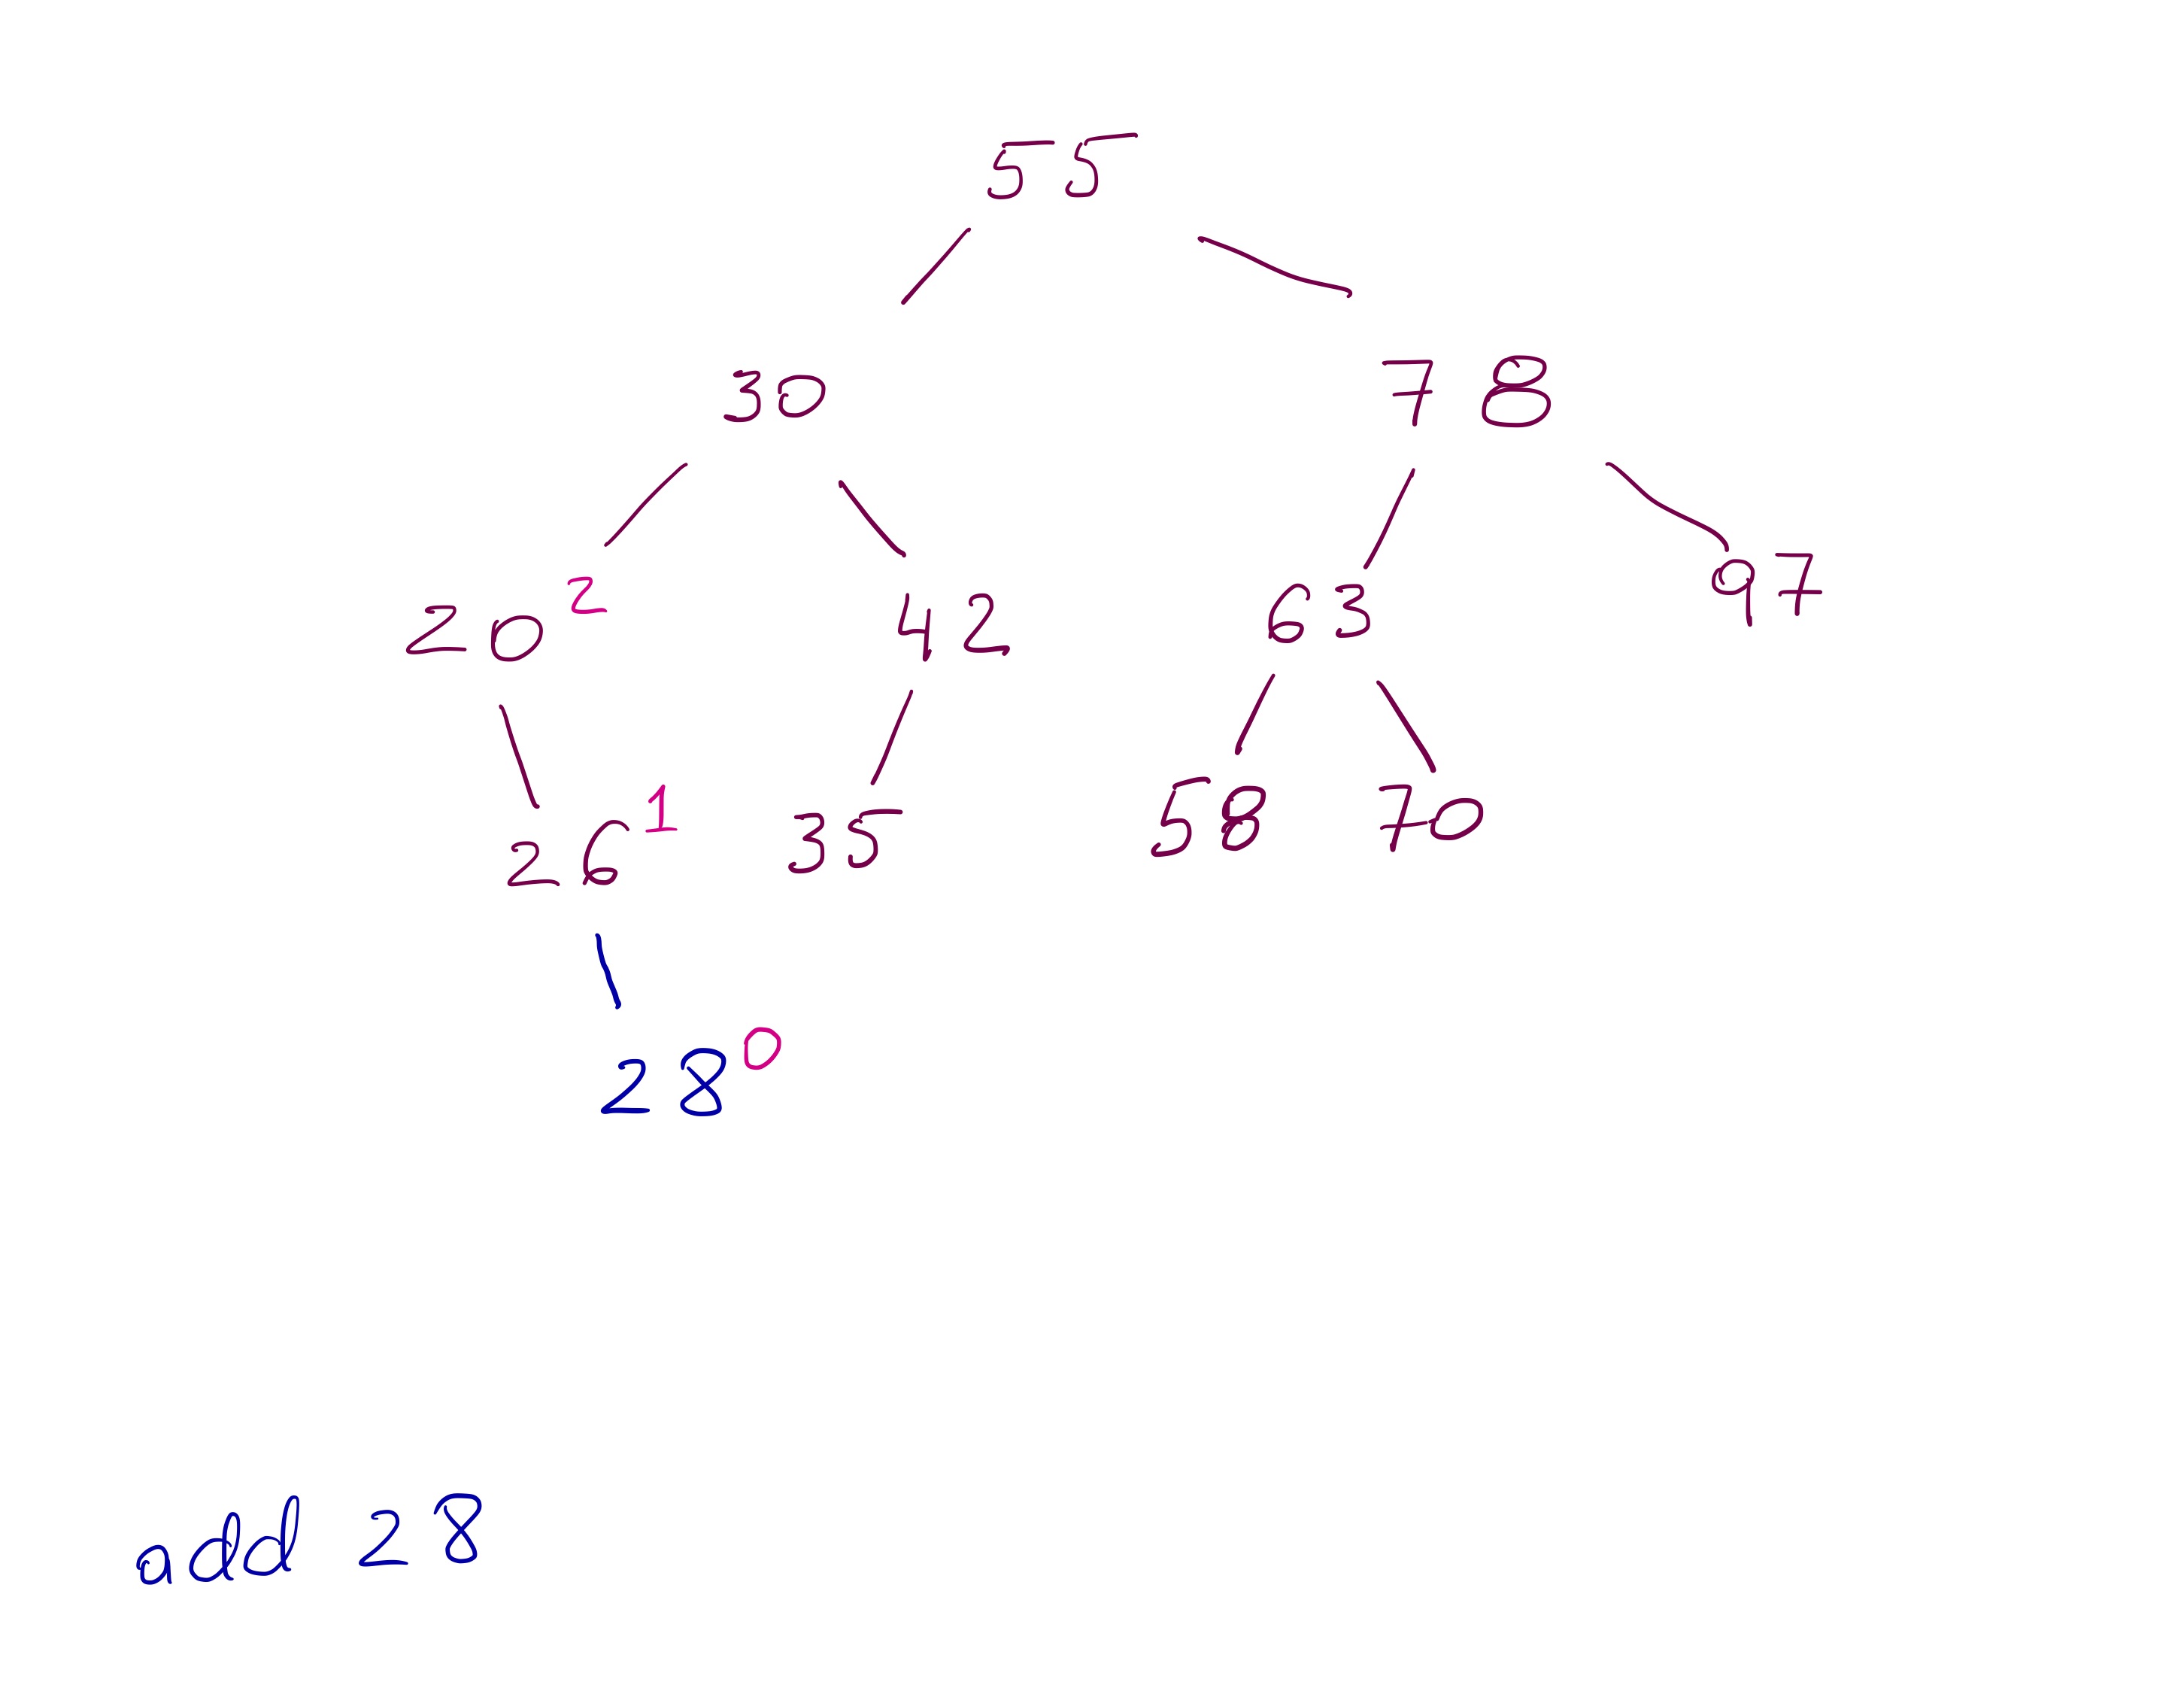 55
30 78
20 2 42 63 97
26 1 35 58 70
28 0
add 28